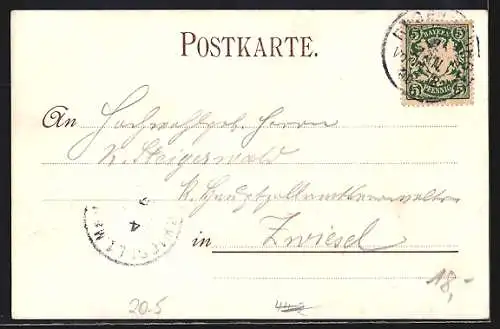 POSTKARTE.
BAYERN
5 5
PFENNIG
An Hochwohlgeb. Herrn
N. Steigerwald
K. Hauptzollamtsverwalter
in Zwiesel
4
20-5
18,-